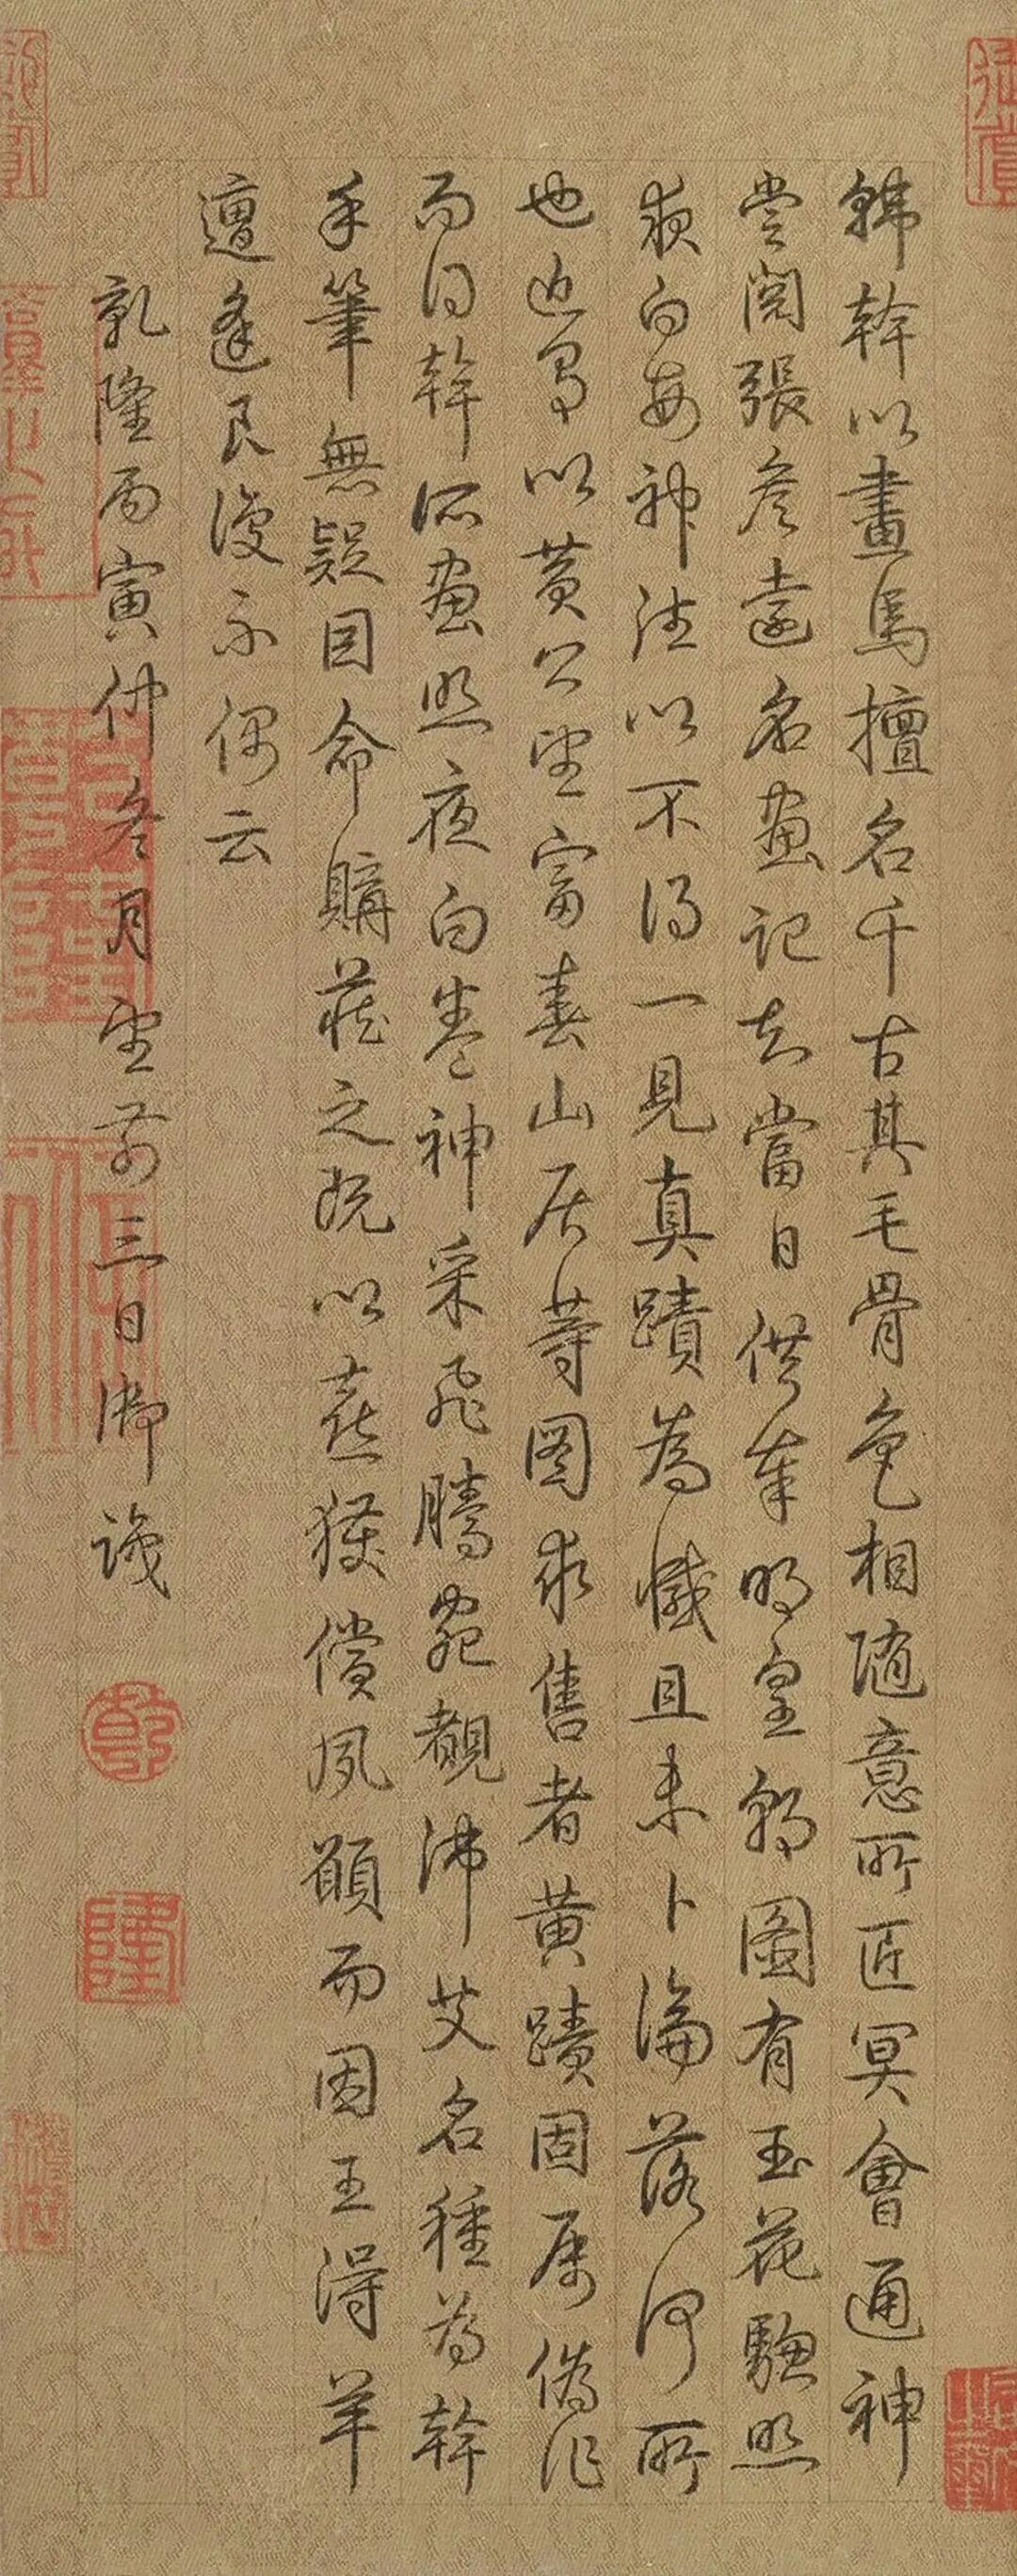 韓幹以畫馬擅名千古其毛骨色相隨意所匠冥會通神
嘗閱張彥遠名畫記知當日供奉明皇朝圖有玉花驄照
夜白每神注以不得一見真蹟為憾且未卜淪落何所
也近以黃公望富春山居等圖求售者黃蹟固屬偽作
而同幹所畫照夜白卷神采飛騰宛覩沛艾名種為幹
手筆無疑因命購藏之既以喜獲償夙願而因王得羊
遭逢良復不偶云
乾隆丙寅仲冬月望前三日御識
乾
隆